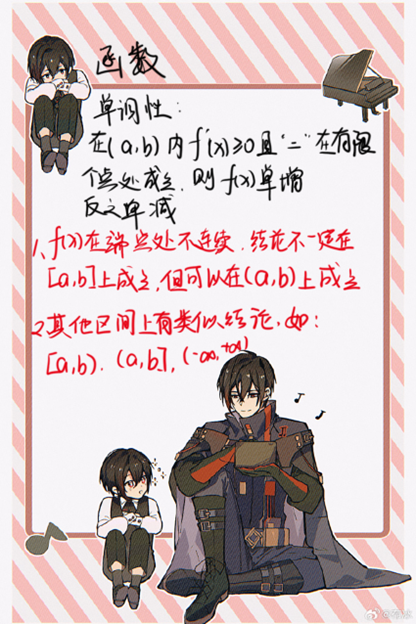 函数
单调性：
在(a,b)内f'(x)≥0且"="在有限
个点处成立,则f(x)单增
反之单减
1、f(x)在端点处不连续.结论不一定在
[a,b]上成立,但可以在(a,b)上成立
2、其他区间上有类似结论,如：
[a,b). (a,b], (-∞,+∞)